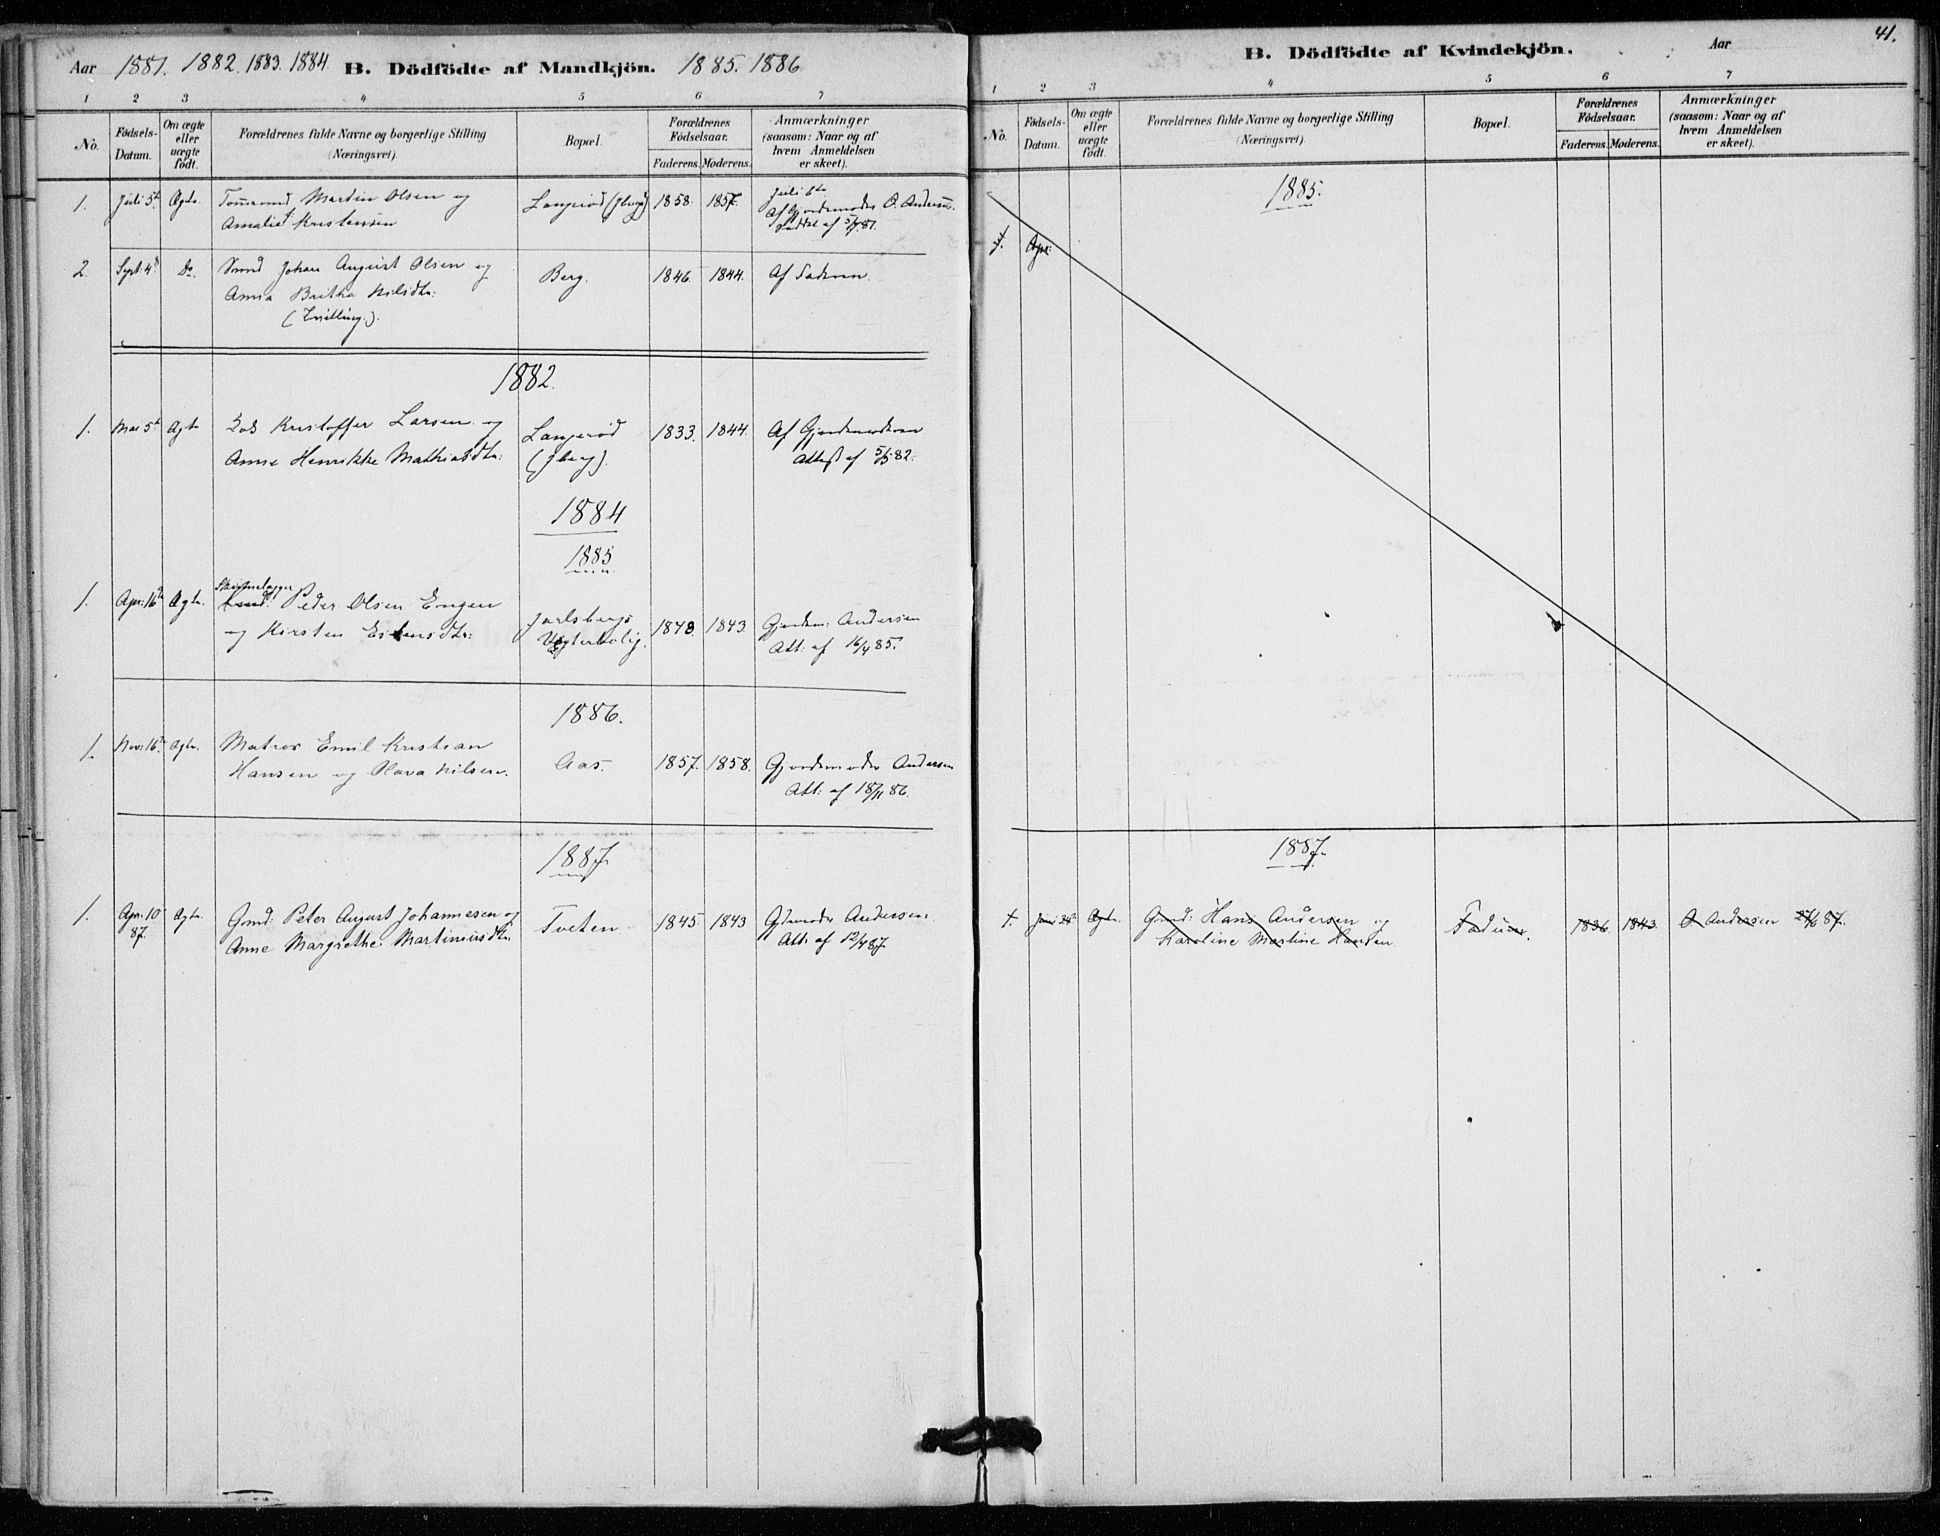 Aar 1881. 1882. 1883. 1884 B. Dödfödte af Mandkjön. 1885. 1886
1 2 3 4 5 6 7
No.
Födsels-
Datum.
Om ægte
eller
uægte
födt.
Forældrenes fulde Navne og borgerlige Stilling
(Næringsvei)
Bopæl.
Forældrenes
Födselsaar.
Faderens. Moderens.
Anmærkninger
(saasom: Naar og af
hvem Anmeldelsen
er skeet).
1. Juli 5te Ægte. Martin Olsen og
Amalie Kristensen
Langerød 1858. 1857. Juli 6te
Af Gjordemoder O. Andersen.
af 5/7 81.
2. Sept: 4de Do. Smed Johan August Olsen og
Anna Nilsdtr:
(Tvilling.).
Berg. 1846. 1844. Af Faderen.
1882.
1. Mai 5te Ægte Kristoffer Larsen og
Anne Henrikke Mathiasdtr:
Langerød
1833. 1844 Af Gjordemoderen
Attest af 5/5 82.
1884
1885
1. Apr: 16de Ægte. Peder Olsen Engen
og Kirsten
Jarlsbergs
Vogterbolig. 1843. 1843. Gjordem: Andersen
Att: af 16/4 85.
1886.
1. Nov: 16de Ægte. Matros Emil Kristian
Hansen og Nilsen.
Aas. 1857. 1858. Gjordemoder Andersen
Att: af 18/11 86.
1887.
1. Apr: 10
87. Ægte. Gmd: Peter August Johannesen og
Anne Margrethe Martiniusdtr.
Tveten 1845 1843 Andersen.
Att: af 12/4 87
41.
B. Dödfödte af Kvindekjön. Aar
1 2 3 4 5 6 7
No.
Födsels-
Datum.
Om ægte
eller
uægte
födt.
Forældrenes fulde Navne og borgerlige Stilling
(Næringsvei)
Bopæl.
Forældrenes
Födselsaar.
Faderens. Moderens.
Anmærkninger
(saasom: Naar og af
hvem Anmeldelsen
er skeet).
1885.
1. Apr:
1887.
1. Ægte. Gmd: Hans Andersen og
Karoline Martine Hansen
Fadum. 1836 1843 O. Andersen 27/6 87.